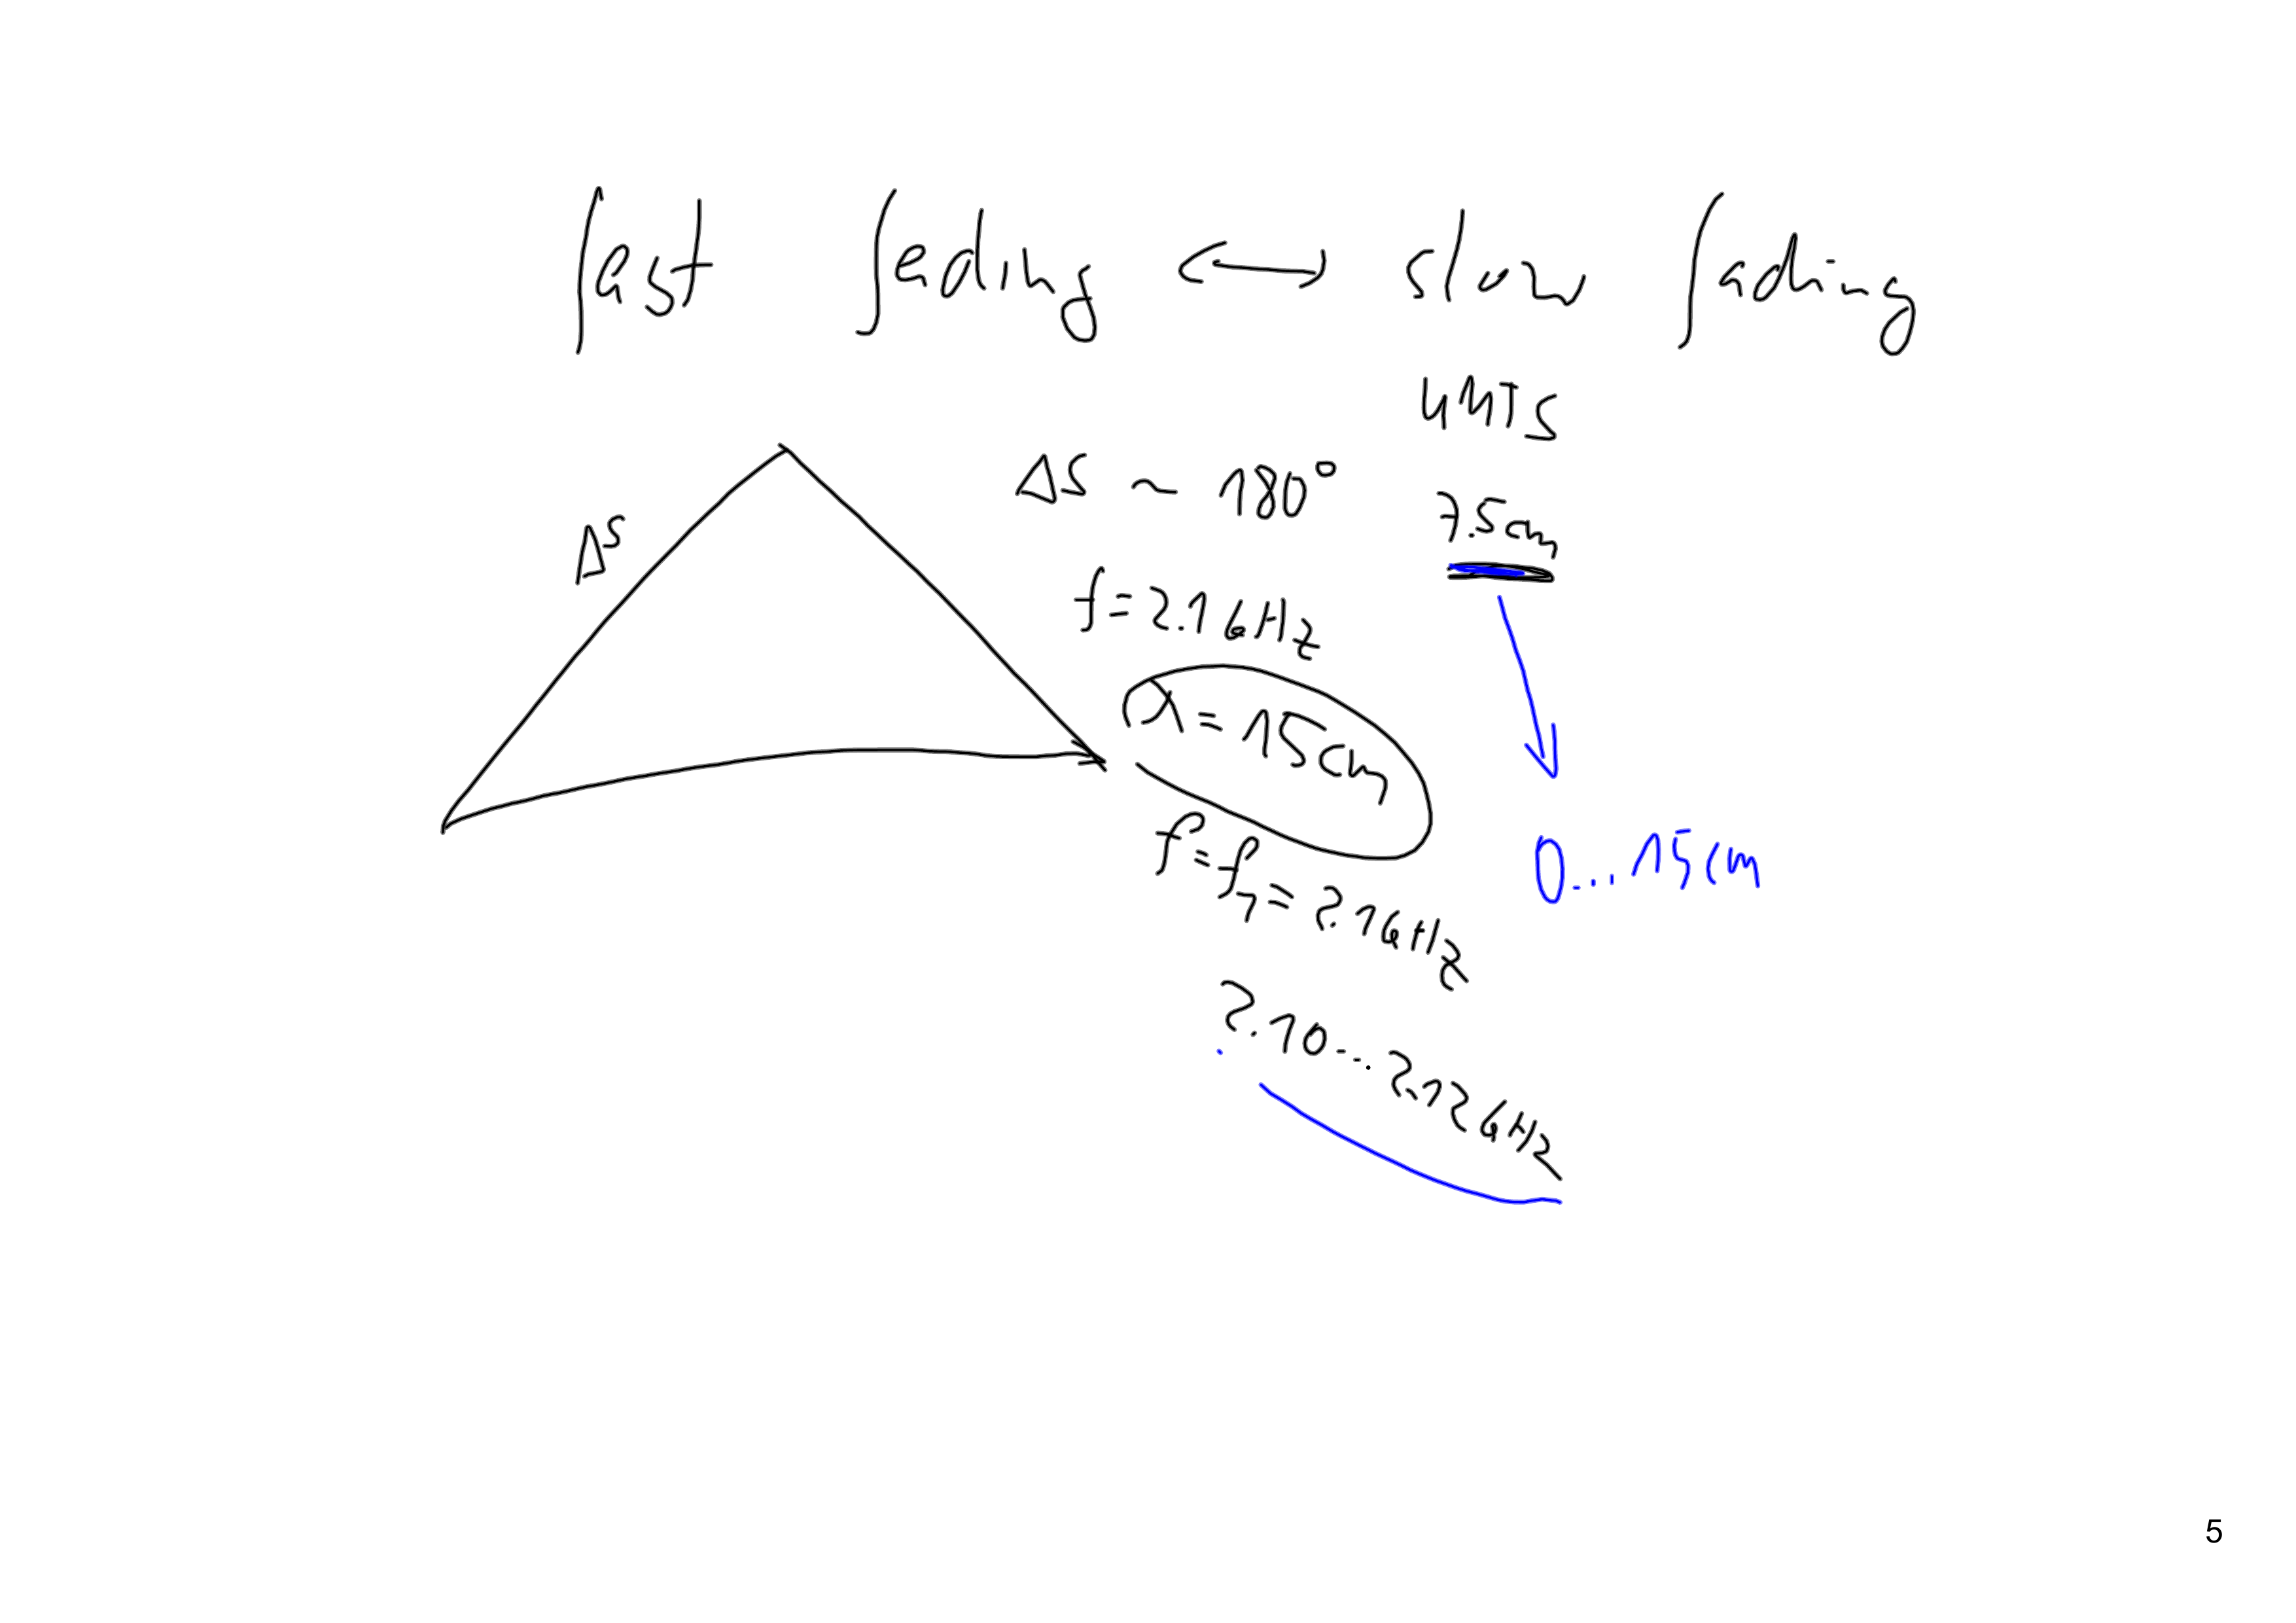 fast fading ⟷ slow fading
UMTS
ΔS ~ 180°
7.5cm
ΔS
f = 2.1GHz
λ = 15cm
f = f₁ = 2.1GHz
0...15cm
2.10...2.12GHz
5